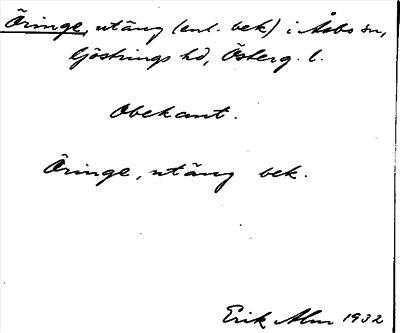 Äringe, utäng (enl. bek) i Åsbo sn,
Göstrings hd, Österg. l.
Obekant.
Äringe, utäng bek.
Erik Alm 1932